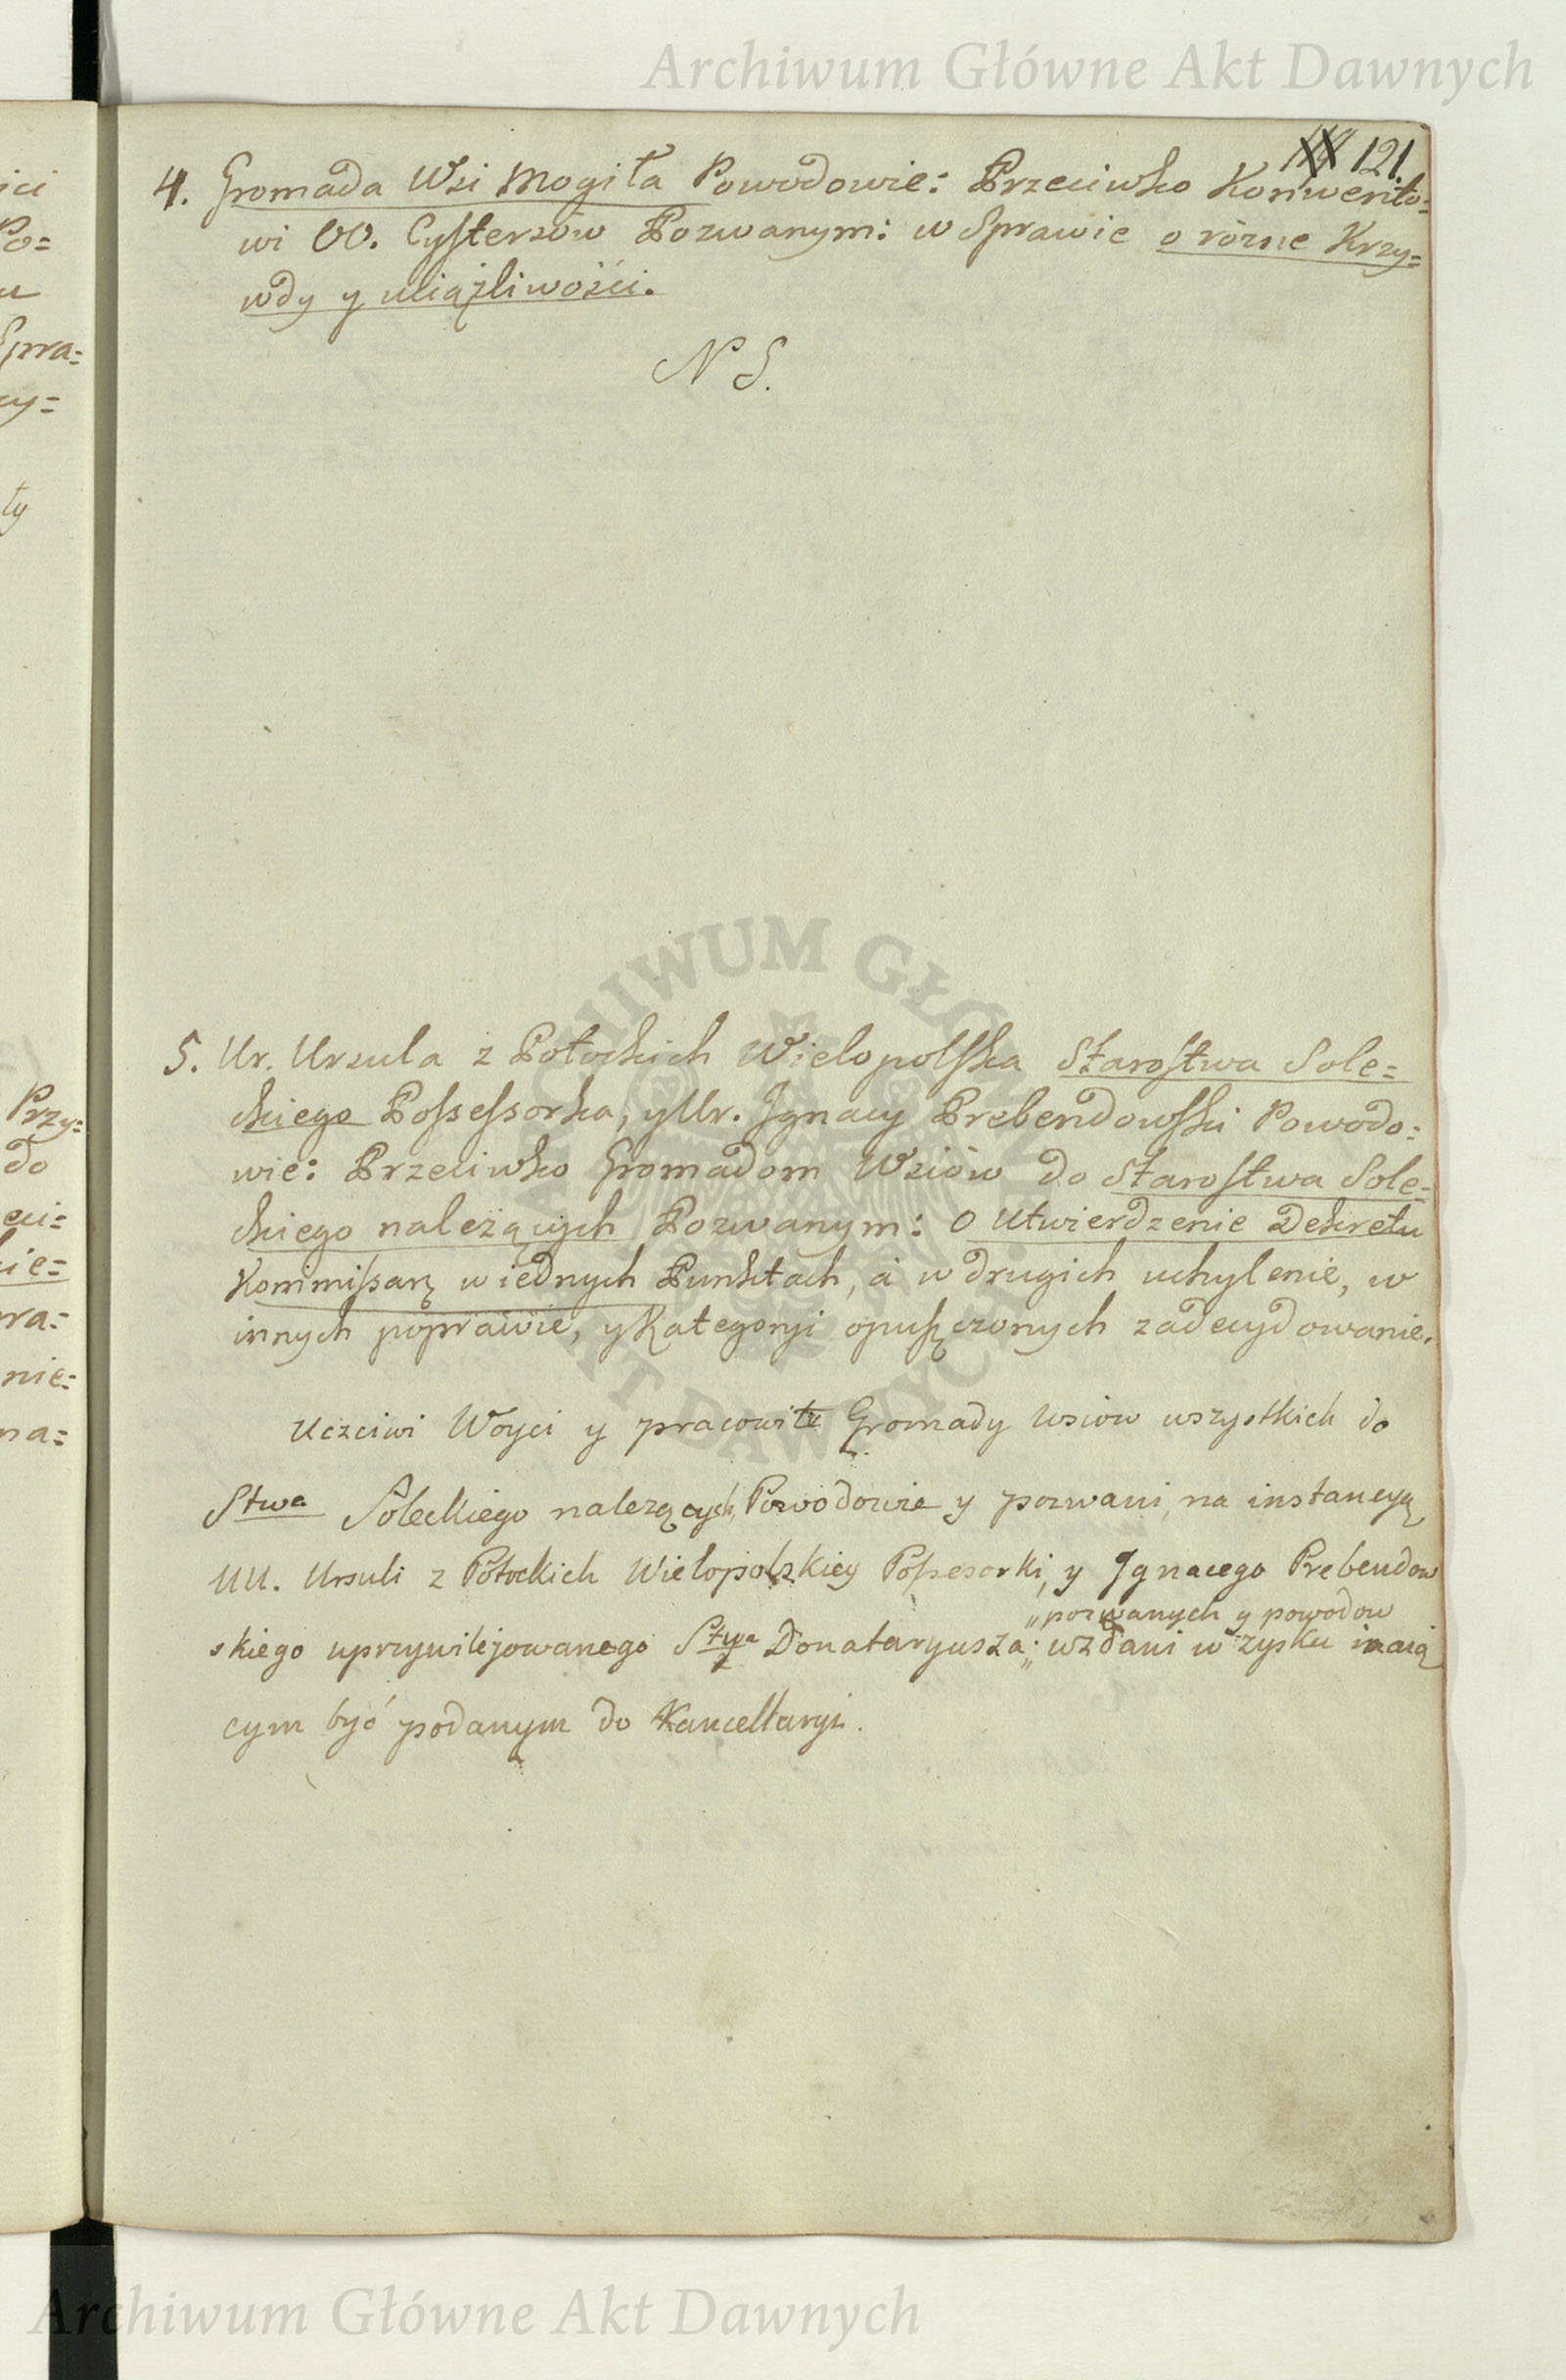 Archiwum Główne Akt Dawnych
121.
4. Gromada Wsi Mogiła Powodowie: Przeciwko Konwento=
wi OO. Cystersów Pozwanym: w Sprawie o rózne Krzy=
wdy y uciążliwości.
N S.
5. Ur. Urzula z Potockich Wielopolska Starostwa Sole=
ckiego Possessorka, y Ur. Jgnacy Prebendowski Powodo=
wie: Przeciwko Gromadom Wsiów do Starostwa Sole=
ckiego należących Pozwanym: O Utwierdzenie Dekretu
Kommissarz w iednych Punktach, a w drugich uchylenie, w
innych poprawie, y Kategoryi opuszczonych zadecydowanie.
Uczciwi Woyci y pracowite Gromady wsiow wszystkich do
Stwa Soleckiego nalezących, Powodowie y pozwani, na instancyą
UU. Ursuli z Potockich Wielopolskiey Possesorki, y Jgnacego Prebendow
„pozwanych y powodow
skiego uprzywilejowanego Stwa Donataryusza; wzdani w zysku maią
cym być podanym do Kancellaryi.
ici
Po=
Spra=
cy=
ty
Przy=
do
eci=
cie=
wa=
nie=
na=
ARCHIWUM GŁÓWNE AKT DAWNYCH
Archiwum Główne Akt Dawnych